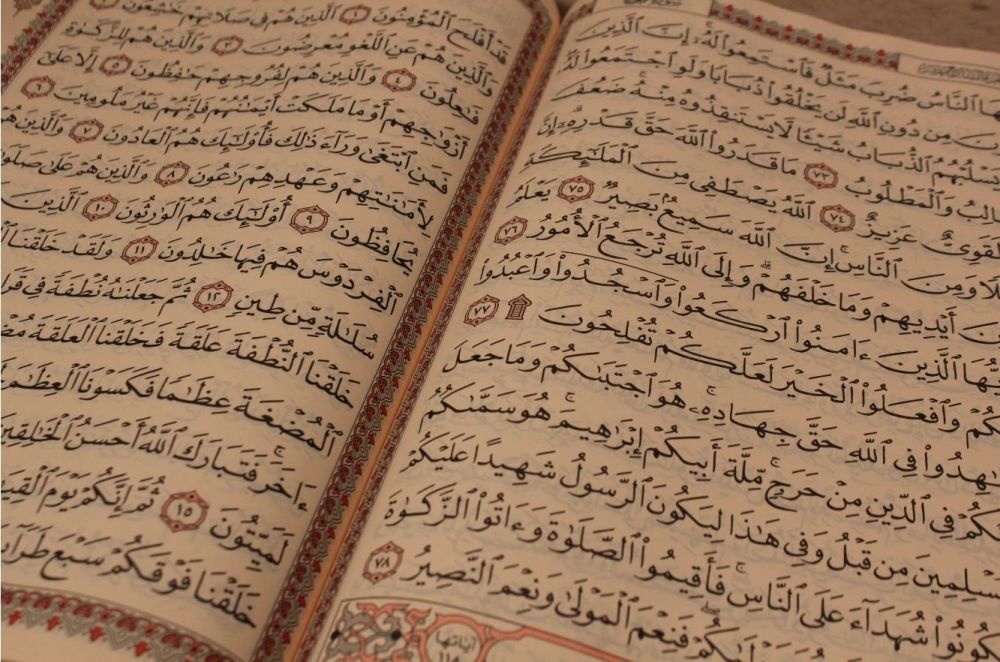 ٱلنَّاسُ ضُرِبَ مَثَلٌ فَٱسْتَمِعُوا۟ لَهُۥٓ ۚ إِنَّ ٱلَّذِينَ
مِن دُونِ ٱللَّهِ لَن يَخْلُقُوا۟ ذُبَابًا وَلَوِ ٱجْتَمَعُوا۟ لَهُۥ
يَسْلُبْهُمُ ٱلذُّبَابُ شَيْـًٔا لَّا يَسْتَنقِذُوهُ مِنْهُ ۚ ضَعُفَ
وَٱلْمَطْلُوبُ ٧٣ مَا قَدَرُوا۟ ٱللَّهَ حَقَّ قَدْرِهِۦٓ ۗ إِنَّ
لَقَوِىٌّ عَزِيزٌ ٧٤ ٱللَّهُ يَصْطَفِى مِنَ ٱلْمَلَـٰٓئِكَةِ
وَمِنَ ٱلنَّاسِ ۚ إِنَّ ٱللَّهَ سَمِيعٌۢ بَصِيرٌ ٧٥ يَعْلَمُ
أَيْدِيهِمْ وَمَا خَلْفَهُمْ ۗ وَإِلَى ٱللَّهِ تُرْجَعُ ٱلْأُمُورُ ٧٦
ٱلَّذِينَ ءَامَنُوا۟ ٱرْكَعُوا۟ وَٱسْجُدُوا۟ وَٱعْبُدُوا۟
وَٱفْعَلُوا۟ ٱلْخَيْرَ لَعَلَّكُمْ تُفْلِحُونَ ۩ ٧٧
فِى ٱللَّهِ حَقَّ جِهَادِهِۦ ۚ هُوَ ٱجْتَبَىٰكُمْ وَمَا جَعَلَ
فِى ٱلدِّينِ مِنْ حَرَجٍ ۚ مِّلَّةَ أَبِيكُمْ إِبْرَٰهِيمَ ۚ هُوَ سَمَّىٰكُمُ
مِن قَبْلُ وَفِى هَـٰذَا لِيَكُونَ ٱلرَّسُولُ شَهِيدًا عَلَيْكُمْ
شُهَدَآءَ عَلَى ٱلنَّاسِ ۚ فَأَقِيمُوا۟ ٱلصَّلَوٰةَ وَءَاتُوا۟ ٱلزَّكَوٰةَ
فَنِعْمَ ٱلْمَوْلَىٰ وَنِعْمَ ٱلنَّصِيرُ ٧٨
آياتها
١١٨
قَدْ أَفْلَحَ ٱلْمُؤْمِنُونَ ١ ٱلَّذِينَ هُمْ فِى صَلَاتِهِمْ خَـٰشِعُونَ ٢
وَٱلَّذِينَ هُمْ عَنِ ٱللَّغْوِ مُعْرِضُونَ ٣ وَٱلَّذِينَ هُمْ لِلزَّكَوٰةِ
فَـٰعِلُونَ ٤ وَٱلَّذِينَ هُمْ لِفُرُوجِهِمْ حَـٰفِظُونَ ٥ إِلَّا عَلَىٰٓ
أَزْوَٰجِهِمْ أَوْ مَا مَلَكَتْ أَيْمَـٰنُهُمْ فَإِنَّهُمْ غَيْرُ مَلُومِينَ ٦
فَمَنِ ٱبْتَغَىٰ وَرَآءَ ذَٰلِكَ فَأُو۟لَـٰٓئِكَ هُمُ ٱلْعَادُونَ ٧ وَٱلَّذِينَ هُمْ
لِأَمَـٰنَـٰتِهِمْ وَعَهْدِهِمْ رَٰعُونَ ٨ وَٱلَّذِينَ هُمْ عَلَىٰ صَلَوَٰتِهِمْ
يُحَافِظُونَ ٩ أُو۟لَـٰٓئِكَ هُمُ ٱلْوَٰرِثُونَ ١٠ ٱلَّذِينَ
ٱلْفِرْدَوْسَ هُمْ فِيهَا خَـٰلِدُونَ ١١ وَلَقَدْ خَلَقْنَا
سُلَـٰلَةٍ مِّن طِينٍ ١٢ ثُمَّ جَعَلْنَـٰهُ نُطْفَةً فِى
خَلَقْنَا ٱلنُّطْفَةَ عَلَقَةً فَخَلَقْنَا ٱلْعَلَقَةَ
ٱلْمُضْغَةَ عِظَـٰمًا فَكَسَوْنَا ٱلْعِظَـٰمَ
ءَاخَرَ ۚ فَتَبَارَكَ ٱللَّهُ أَحْسَنُ ٱلْخَـٰلِقِينَ
لَمَيِّتُونَ ١٥ ثُمَّ إِنَّكُمْ يَوْمَ
خَلَقْنَا فَوْقَكُمْ سَبْعَ